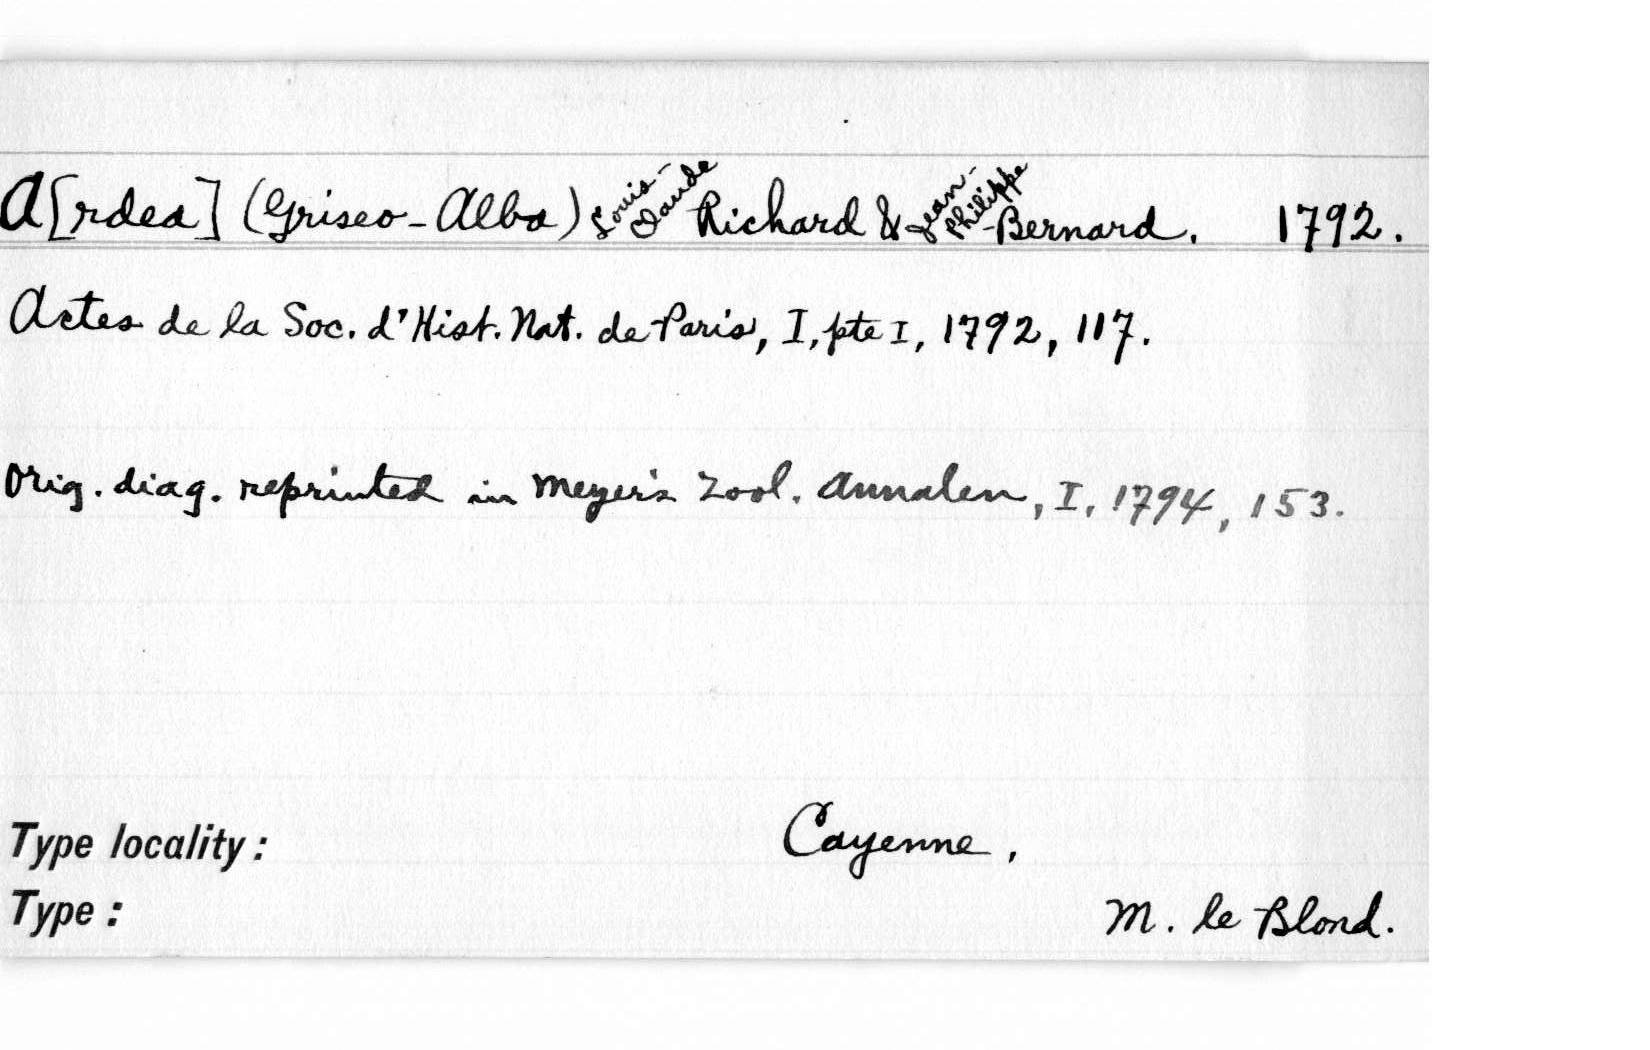 A[rdea] (Griseo-Alba) Louis-Claude Richard & Jean-Philippe-Bernard. 1792.
Actes de la Soc. d'Hist. Nat. de Paris, I, pte I, 1792, 117.
Orig. diag. reprinted in Meyer's Zool. Annalen, I, 1794, 153.
Type locality: Cayenne,
Type: M. le Blond.